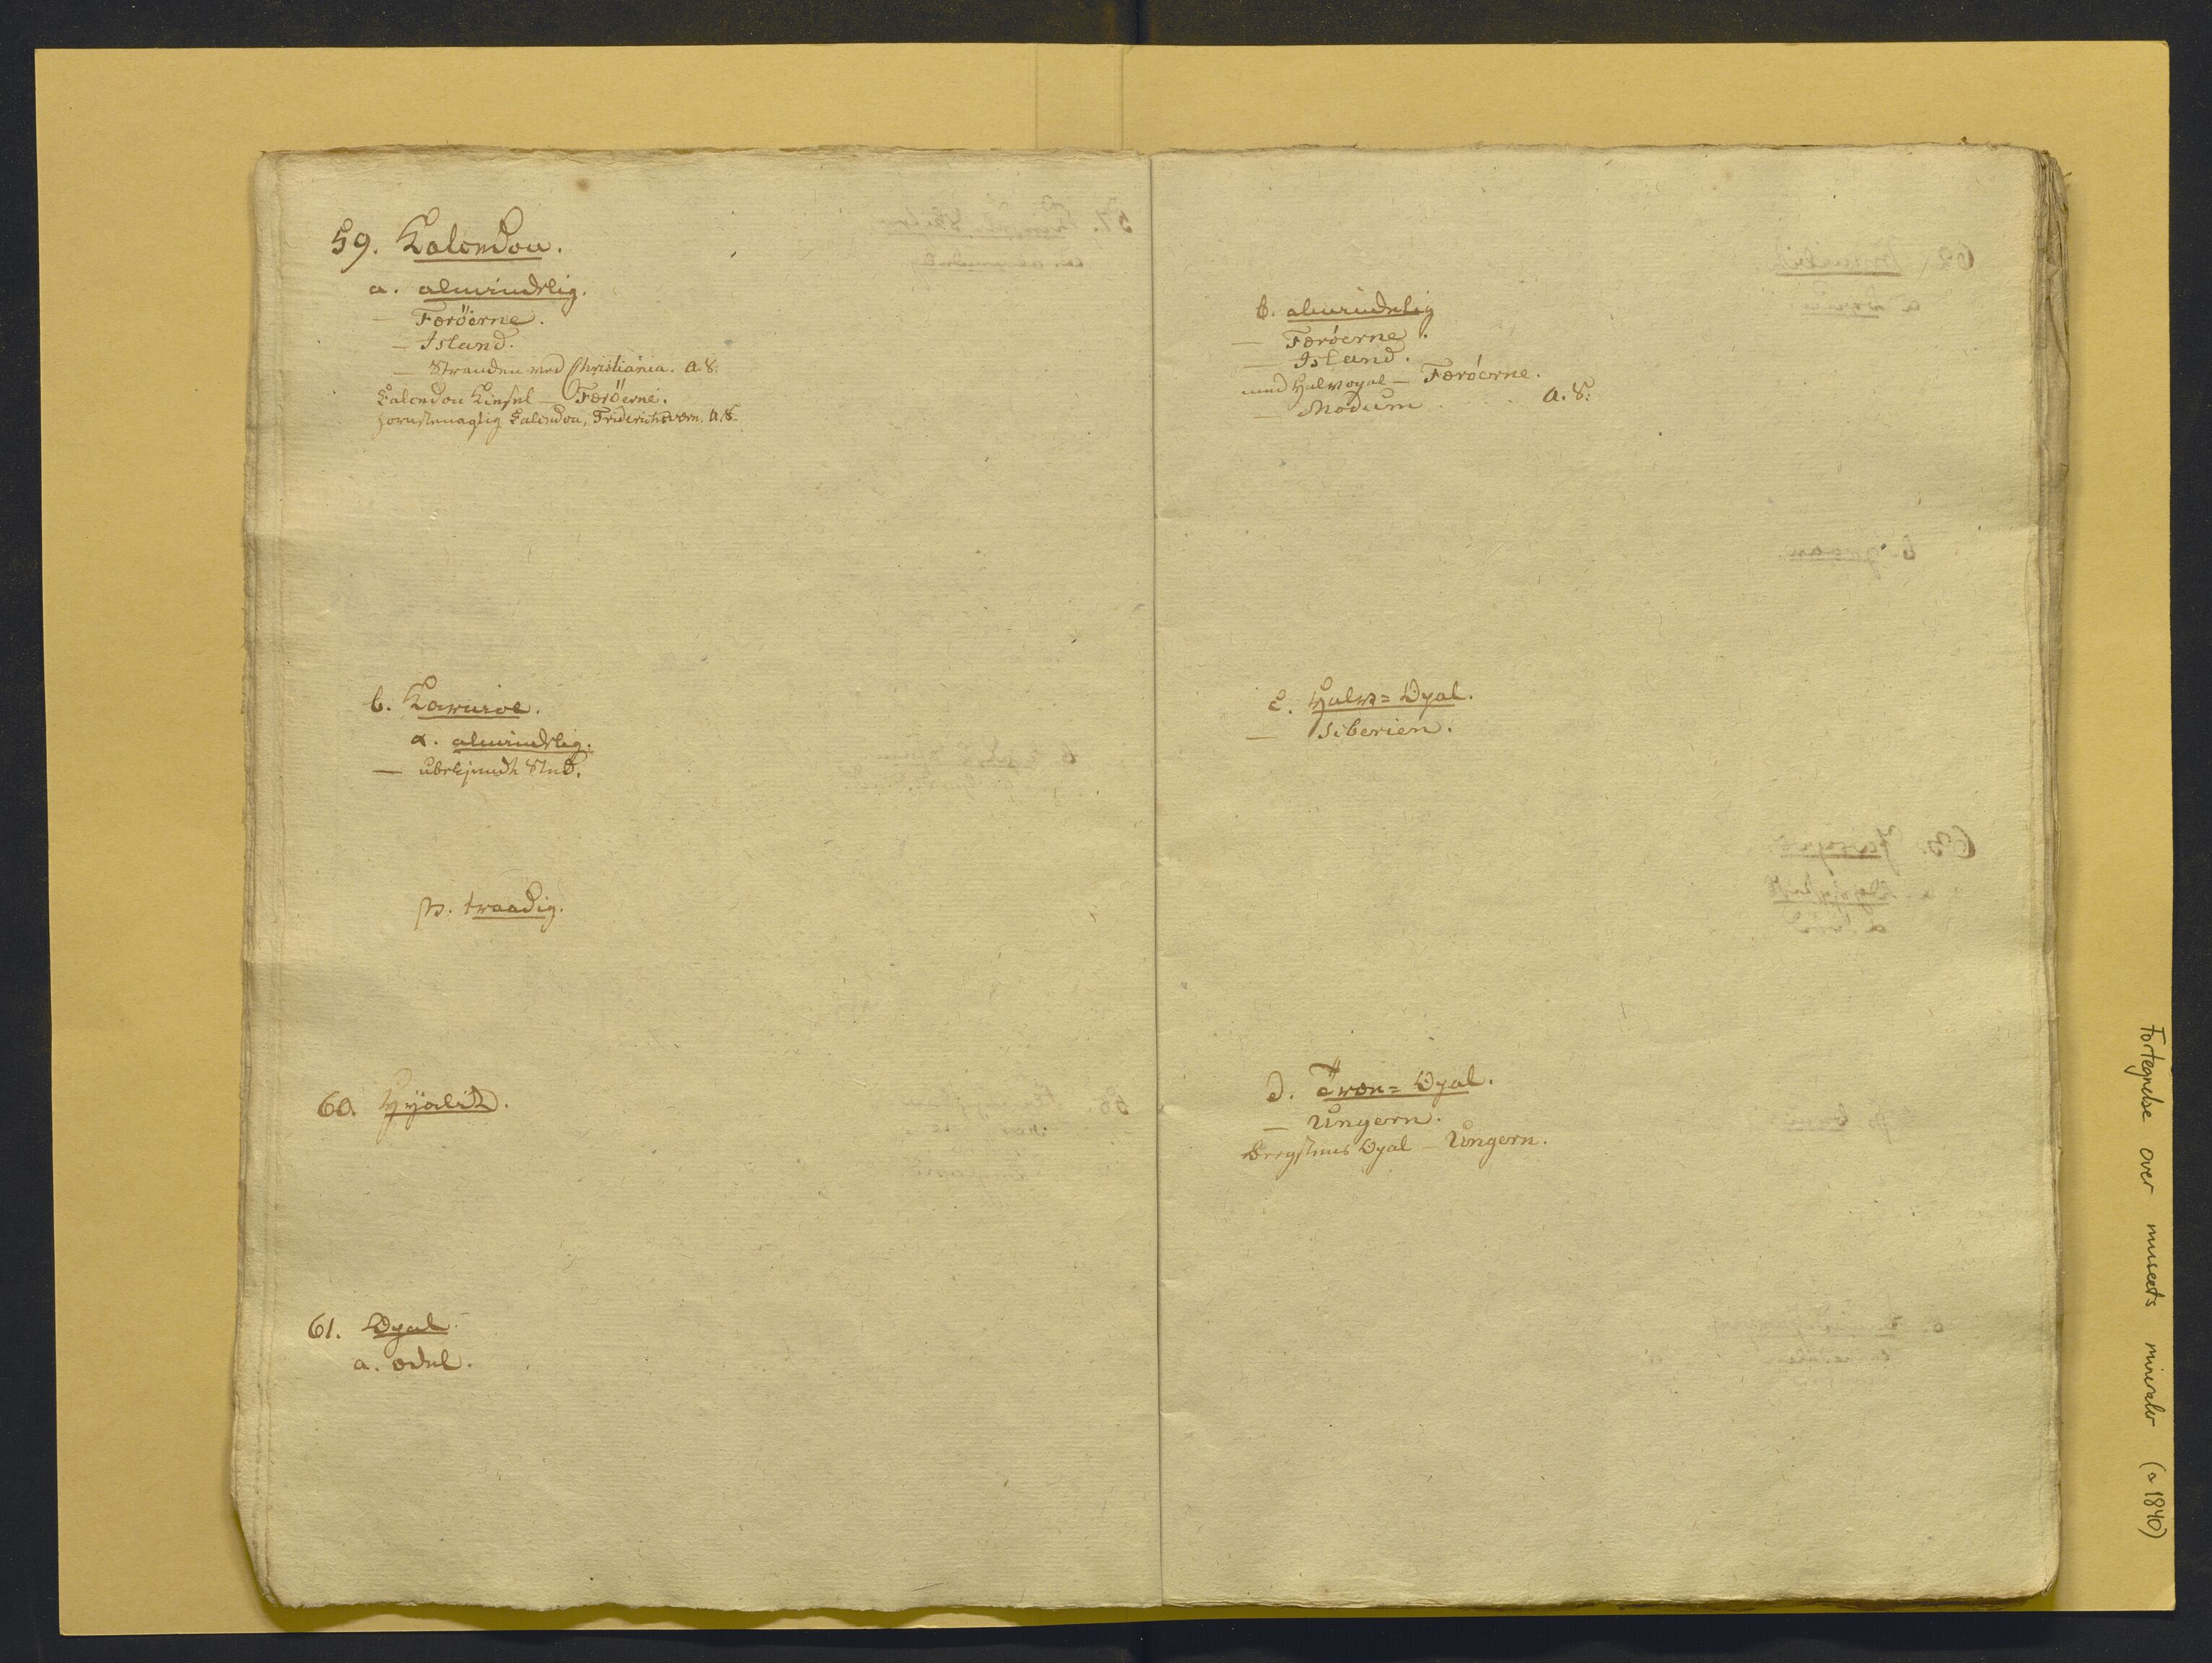 59. Kalcedon.
a. almindelig.
— Færöerne.
— Island.
— Stranden ved Christiania. A. S.
Calcedon Kiesel — Færöerne.
hornsteenagtig Calcedon, Friderichsværn. A. S.
b. Karniol.
α. almindelig.
— ubekjendt Sted.
β. traadig.
60. Hyalit.
61. Opal.
a. ædel.
b. almindelig
— Færöerne.
— Island.
med Halvopal — Færöerne.
— Modum . . . A. S.
c. Halv=Opal.
— Siberien.
d. Træ=Opal.
— Ungern.
Opal — Ungern.
Fortegnelse over museets mineraler (a 1840)